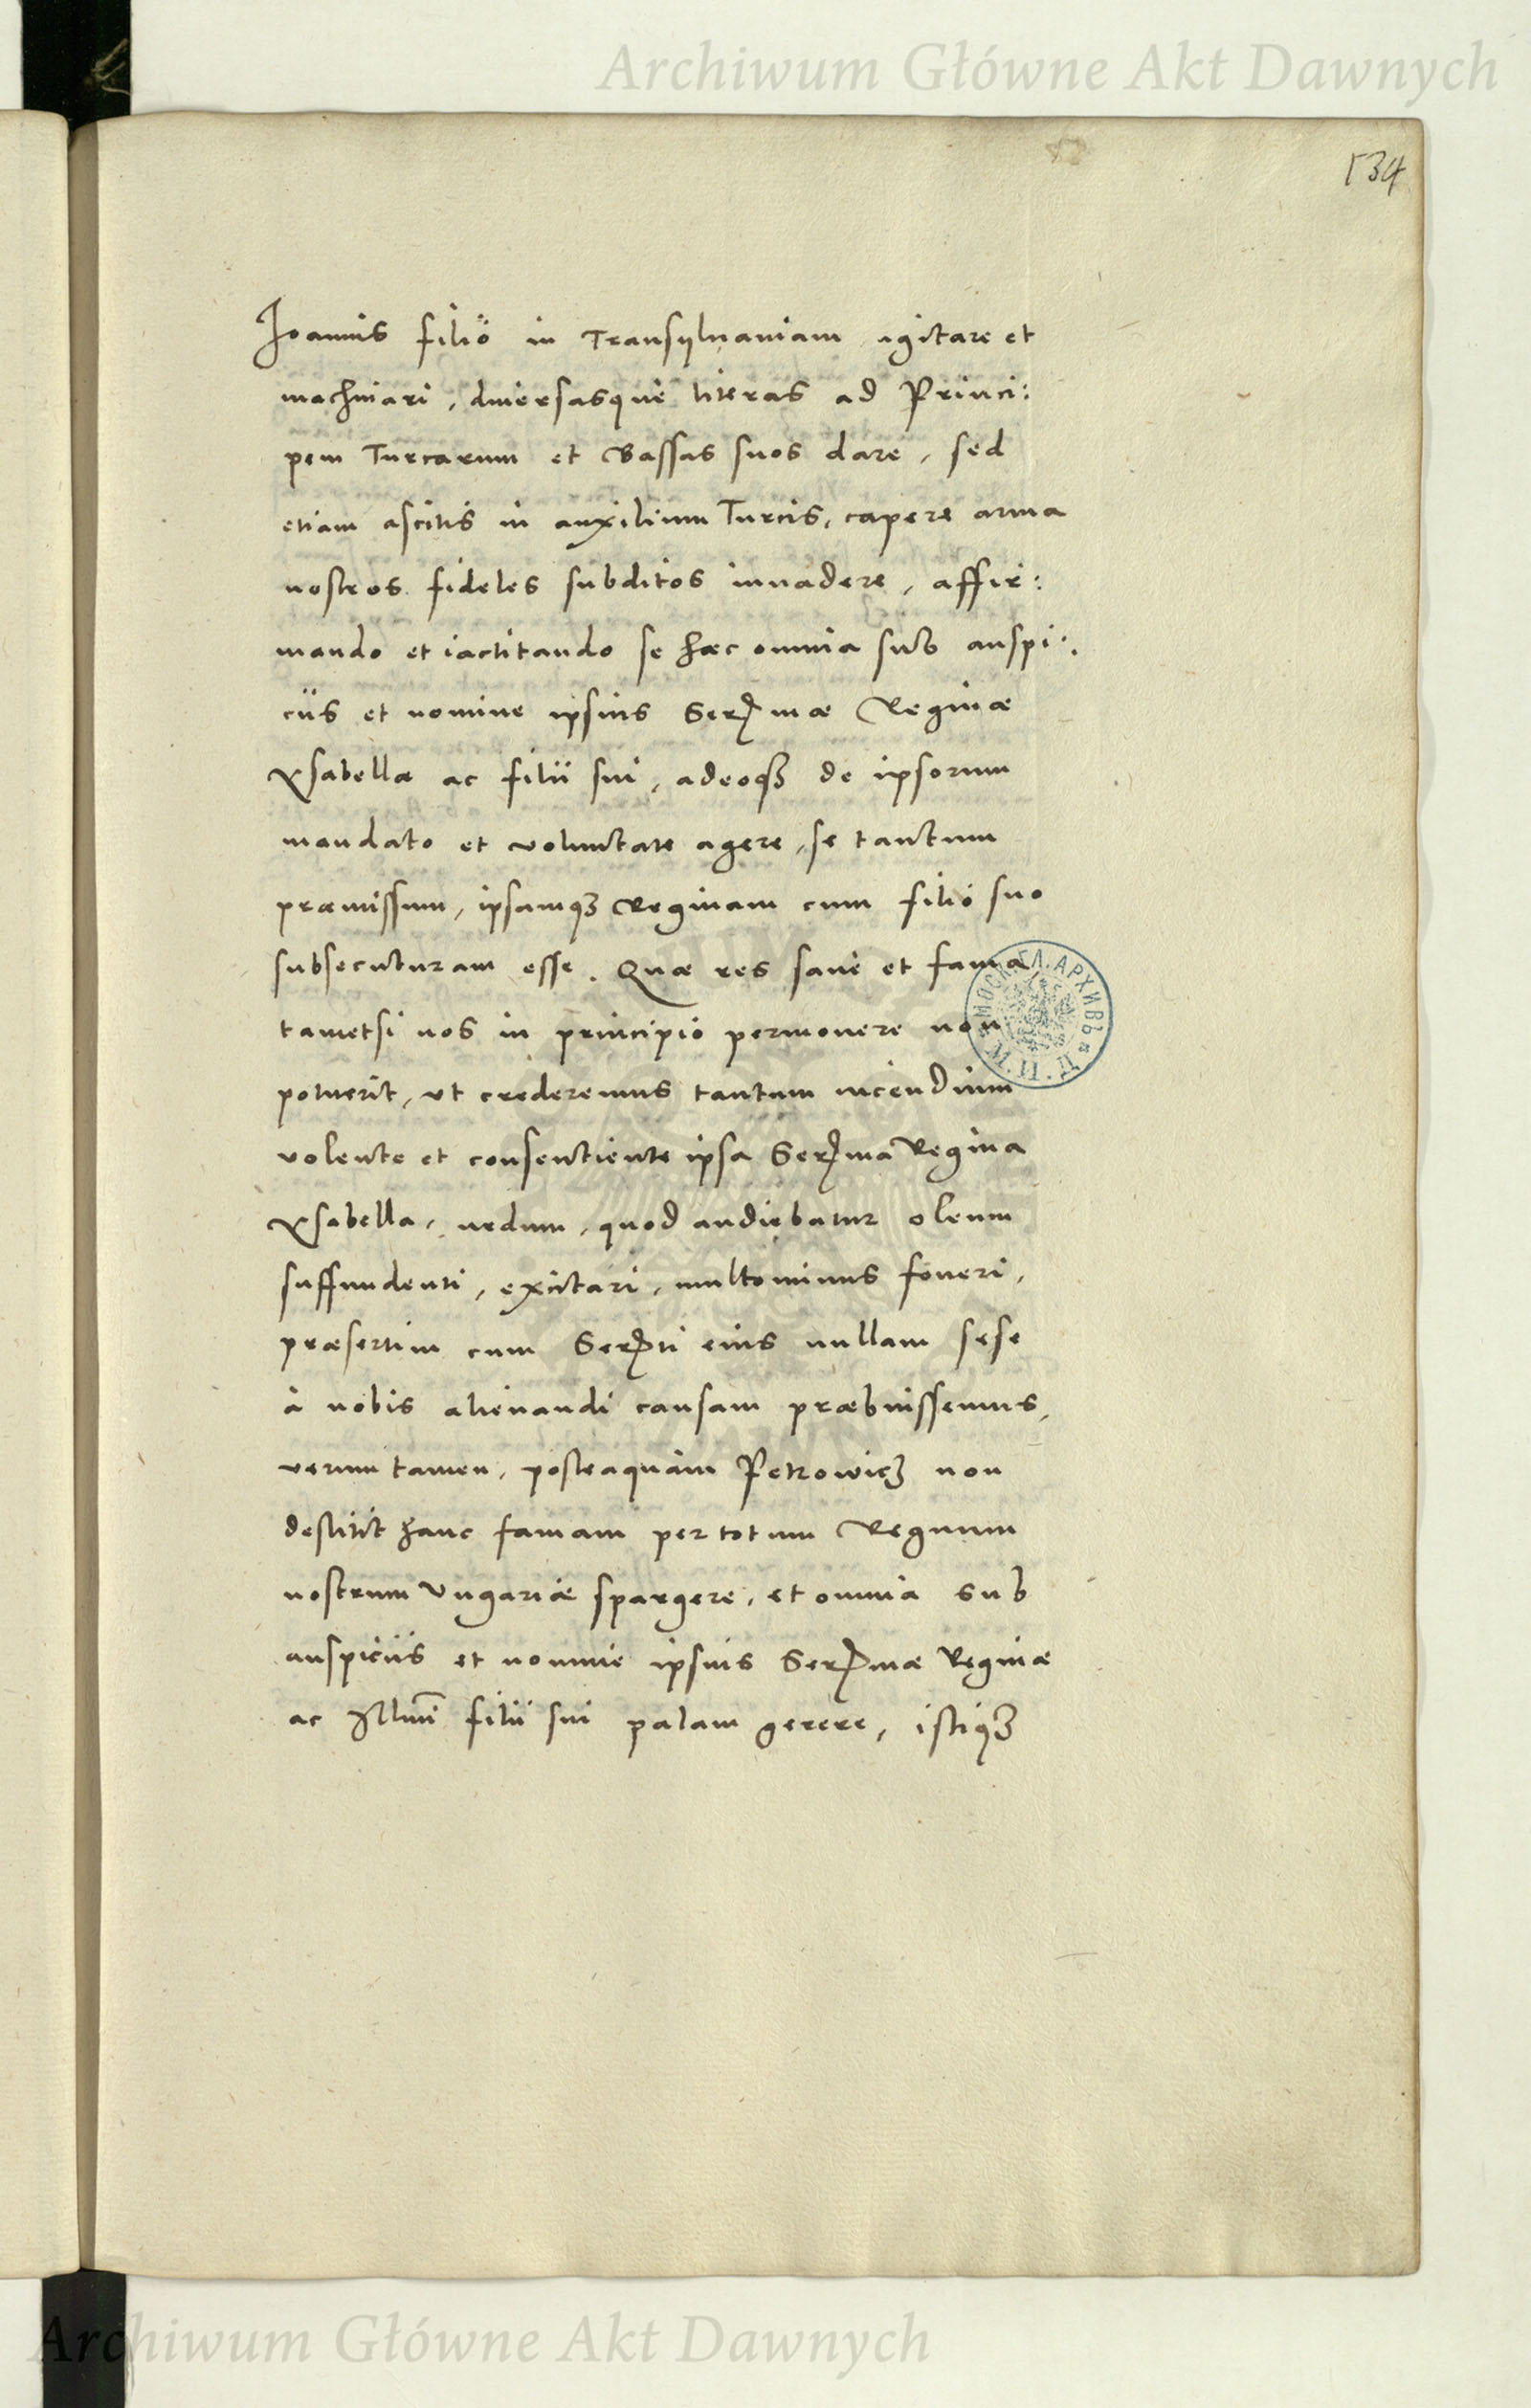 Archiwum Główne Akt Dawnych
134
Joannis filiö in Transyluaniam agitare et
machinari, diuersasquè literas ad Princi:
pem Turcarum et Bassas suos dare, sed
etiam ascitis in auxilium Turcis, capere arma
nostros fideles subditos inuadere, affir:
mando et iactitando se hæc omnia sub auspi:
ciis et nomine ipsius Sermæ Reginæ
Ysabellæ ac filii sui, adeoqꝫ de ipsorum
mandato et voluntate agere, se tantum
præmissum, ipsamqꝫ Reginam cum filio suo
subsecuturam esse. Quæ res sanè et fama,
tametsi nos in principio permouere non
potuerit, vt crederemus tantum incendium
volente et consentiente ipsa Serma Regina
Ysabella, nedum, quod audiebatur oleum
suffundenti, excitari, multominus foueri,
præsertim cum Serti eius nullam sese
à nobis alienandi causam præbuissemus,
verum tamen, posteaquàm Petrowicz non
destitit hanc famam per totum Regnum
nostrum Vngariæ spargere, et omnia sub
auspiciis et nomine ipsius Sermæ Reginæ
ac Illmi filii sui palam gerere, istiqꝫ
МОСК. ГЛ. АРХИВЪ
Archiwum Główne Akt Dawnych